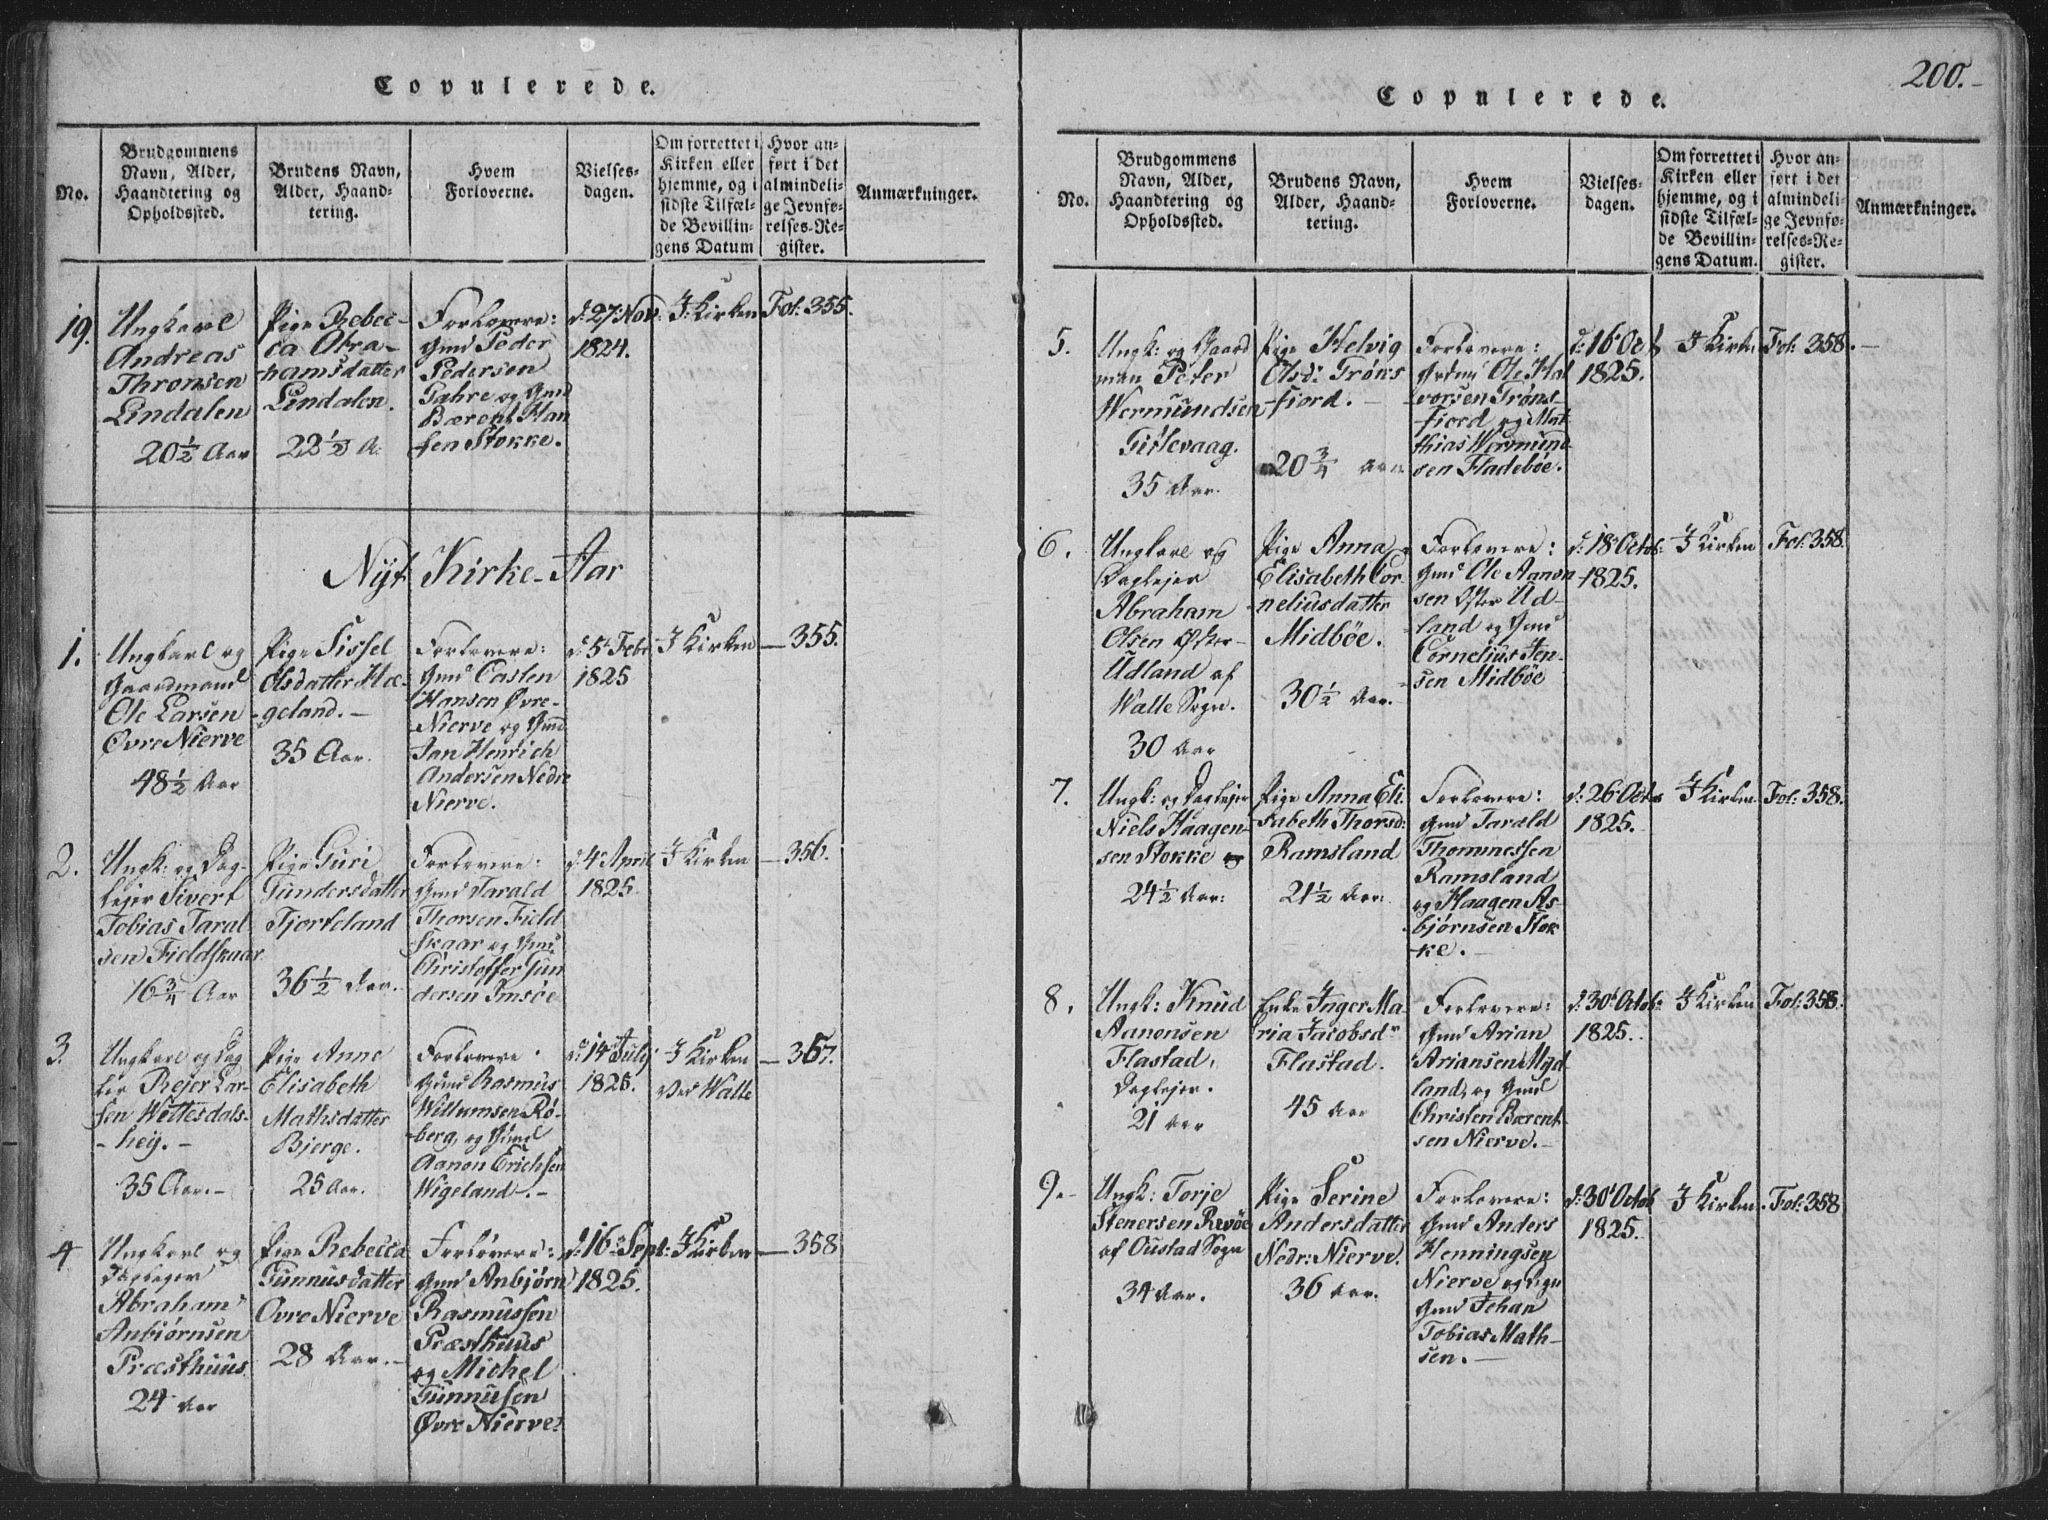 Copulerede.
No.
Brudgommens
Navn, Alder,
Haandtering og
Opholdssted.
Brudens Navn,
Alder, Haand-
tering.
Hvem
Forloverne.
Vielses-
dagen.
Om forrettet i
Kirken eller
hjemme, og i
sidste Tilfæl-
de Bevillin-
gens Datum
Hvor an-
ført i det
almindeli-
ge Jevnfø-
relses-Re-
gister.
Anmærkninger.
19.
Ungkarl
Andreas
Thronsen
Lindalen
20½ Aar
Pige Rebec-
ca Abra-
hamsdatter
Lindalen.
22½ A.
Forlovere:
Gmd Peder
Pedersen
Fahre og Gmd
Bærent Han
sen Stokke.
d: 27 Nov:
1824.
I Kirken
Fol: 355.
Nyt Kirke-Aar
1.
Ungkarl og
Gaardmand
Ole Larsen
Øvre Nierve
48½ Aar
Pige Sissel
Olsdatter Hæ-
geland.-
35 Aar.
Forlovere:
Gmd Casten
Hansen Øvre-
Nierve og Gmd
Jan Henrich
Andersen Nedre
Nierve.
d: 5 Febr
1825
I Kirken
- 355.
2.
Ungk: og Dag-
lejer Sivert
Tobias Taral
sen Fieldskaar
16¾ Aar
Pige Guri
Gundersdatter
Tjorteland
36½ Aar.
Forlovere:
Gmd Tarald
Thorsen Field
skaar og Gmd
Christoffer Gun
dersen Imsøe
d: 4 April
1825.
I Kirken
- 356.
3.
Ungkarl og Dag
leier Rejer Lar-
sen Wettesdals-
- heij.-
35 Aar.-
Pige Anne
Elisabeth
Mathsdatter
Bjerge.
25 Aar.
Forlovere
Gmd Rasmus
Willumsen Rø-
berg, og Gmd
Aanon Erichsen
Wigeland.-
d: 14 July
1825.
I Kirken
ved Walle
- 357.
4
Ungkarl og
Daglejer
Abraham
Anbiørnsen
Præsthuus
24 Aar
Pige Rebecca
Gunnusdatter
Øvre Nierve
28 Aar.-
Forlovere:
Gmd Anbjørn
Rasmussen
Præsthuus
og Michel
Gunnusen
Øvre Nierve.
d: 16 Sept:
1825.
I Kirken
- 358
200.-
Copulerede.
No.
Brudgommens
Navn, Alder,
Haandtering og
Opholdssted.
Brudens Navn,
Alder, Haand-
tering.
Hvem
Forloverne.
Vielses-
dagen.
Om forrettet i
Kirken eller
hjemme, og i
sidste Tilfæl-
de Bevillin-
gens Datum.
Hvor an-
ført i det
almindeli-
ge Jevnfø-
relses-Re-
gister.
Anmærkninger.
5.
Ungk: og Gaard
man Peter
Wermundsen
Gitlevaag.
35 Aar.
Pige Helvig
Olsd: Trøns
fiord.-
20¾ Aar
Forlovere:
Ole Hal
vorsen Trøns-
fiord og Mat
thias Wermund
sen Fladebøe.
d: 16 Oct
1825.
I Kirken
Fol: 358.-
6.
Ungkarl og
Daglejer
Abraham
Olsen Øster-
Udland af
Walle Sogn.
30 Aar
Pige Anna
Elisabeth Cor-
neliusdatter
Midbøe.
30½ Aar.
Forlovere:
Gmd Ole Aanon
sen Øster Ud-
land og Gmd
Cornelius Jen-
sen Midbøe
d: 18 Octob:
1825.
I Kirken
Fol: 358.
7.
Ungk: og Daglejer
Niels Haagen-
sen Stokke
24½ Aar:
Pige Anna Eli
sabeth Thorsd:
Ramsland
21½ Aar:
Forlovere:
Gmd Tarald
Thommessen
Ramsland
og Haagen As-
bjørnsen Stok
ke.-
d: 26 Octo
1825.
I Kirken
Fol: 358.
8.
Ungk: Knud
Aanonsen
Flastad,
Daglejer.
21 Aar
Enke Inger Ma
ria Jacobsdr
Flastad.
45 Aar
Forlovere:
Gmd Arian
Ariansen Myd
land, og Gmd
Christen Bærent
sen Nierve.-
d: 30 Octob:
1825.
I Kirken
Fol: 358.
9.-
Ungk: Torje
Stenersen Revøe
af Oustad Sogn
34 Aar.
Pige Serine
Andersdatter
Nedr: Nierve.
36 Aar.
Forlovere:
Gmd Anders
Henningsen
Nierve og
Gmd Johan
Tobias Math-
sen.-
d: 30 Octob
1825.
I Kirken
Fol: 358